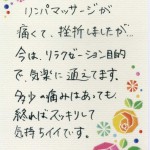 リンパマッサージが
痛くて、挫折しましたが…
今は、リラクゼーション目的
で、気楽に通えてます。
多少痛みはあっても、
終ればスッキリして
気持ちイイです。